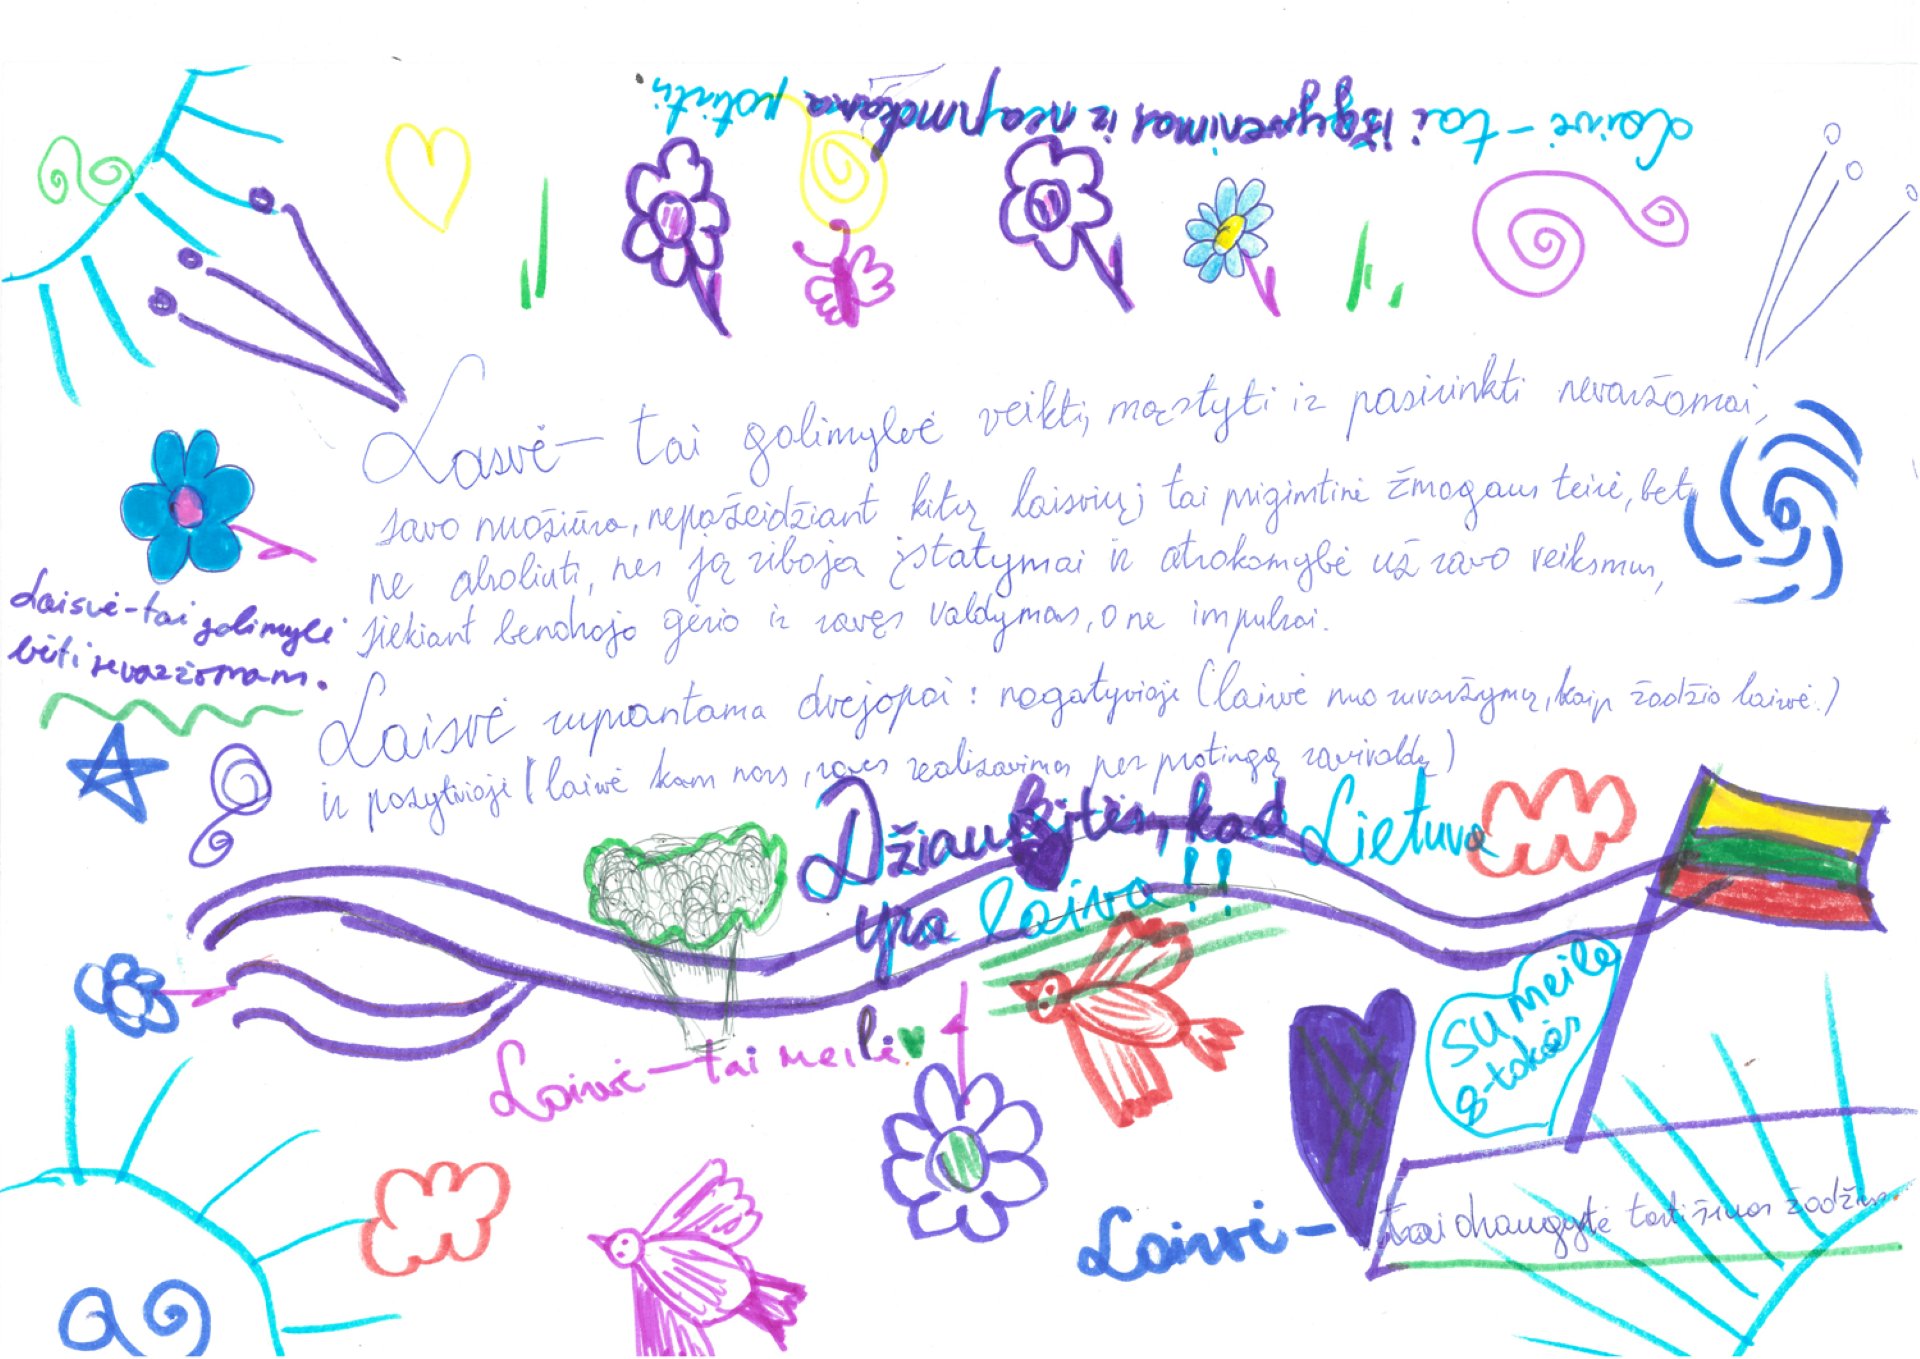 Laisvė - tai išgyvenimas ir neapmokama patirtis.
Lasvė - tai galimybė veikti, mąstyti ir pasirinkti nevaržomai,
savo nuožiūra, nepažeidžiant kitų laisvių; tai prigimtinė žmogaus teisė, bet
ne absoliuti, nes ją riboja įstatymai ir atsakomybė už savo veiksmus,
siekiant bendrojo gėrio ir savęs valdymas, o ne impulsai.
Laisvė - tai galimybė
būti nevaržomam.
Laisvė suprantama dvejopai: negatyvioji (laisvė nuo suvaržymų, kaip žodžio laisvė.)
ir pozytvioji (laisvė kam nors, savęs realizavimas per protingą savivaldą)
Džiaukitės, kad Lietuva
yra laisva!!
Su meile
8-tokės
Laisvė - tai meilė
Laisvė - tai drąugystė tarti šiuos žodžius.